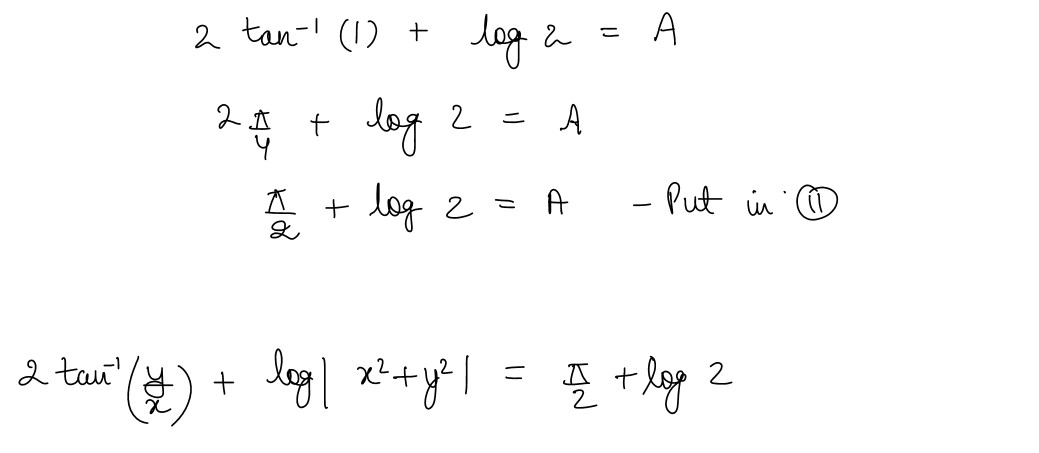 2 tan⁻¹ (1) + log 2 = A
2 π/4 + log 2 = A
π/2 + log 2 = A – Put in (II)
2 tan⁻¹ (y/x) + log | x² + y² | = π/2 + log 2